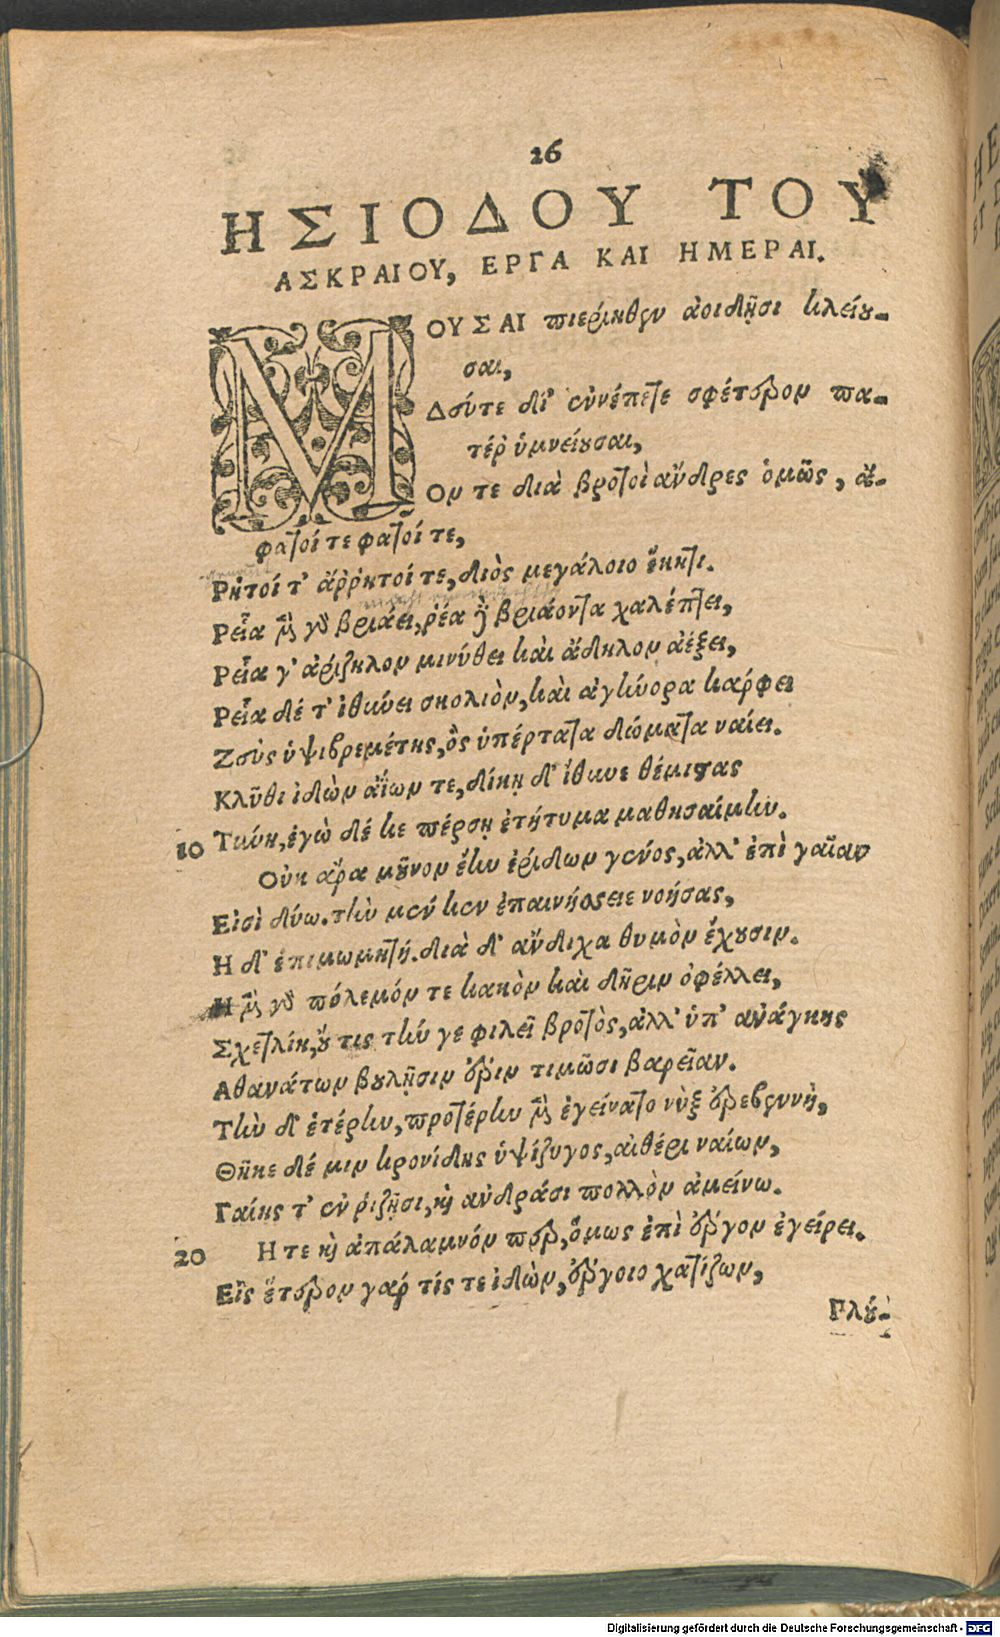 26
ΗΣΙΟΔΟΥ ΤΟΥ
ΑΣΚΡΑΙΟΥ, ΕΡΓΑ ΚΑΙ ΗΜΕΡΑΙ.
ΜΟΥΣΑΙ πιερίηθεν ἀοιδῇσι κλείου-
σαι,
Δεύτε δὲ ἐννέπετε σφέτερον πα-
τέρ ὑμνείουσαι,
Ον τε διὰ βροτοὶ ἄνδρες ὁμῶς, ἄ-
φατοί τε φατοί τε,
Ρητοί τ' ἄῤῥητοί τε, διὸς μεγάλοιο ἕκητι.
Ρεῖα μὲν γὰρ βριάει, ῥέα δὲ βριάοντα χαλέπτει,
Ρεῖα γ' ἀρίζηλον μινύθει καὶ ἄδηλον ἀέξει,
Ρεῖα δέ τ' ἰθύνει σκολιὸν, καὶ ἀγήνορα κάρφει
Ζεὺς ὑψιβρεμέτης, ὃς ὑπέρτατα δώματα ναίει.
Κλῦθι ἰδὼν ἀΐων τε, δίκῃ δ' ἴθυνε θέμιστας
10 Τύνη, ἐγὼ δέ κε πέρσῃ ἐτήτυμα μαθησαίμην.
Οὐκ ἄρα μοῦνον ἔην ἐρίδων γένος, ἀλλ' ἐπὶ γαῖαν
Εἰσὶ δύω. τὴν μέν κεν ἐπαινήσειε νοήσας,
Η δ' ἐπιμωμητή. διὰ δ' ἄνδιχα θυμὸν ἔχουσιν.
Η μὲν γὰρ πόλεμόν τε κακὸν καὶ δῆριν ὀφέλλει,
Σχετλίη, οὔ τις τήν γε φιλεῖ βροτὸς, ἀλλ' ὑπ' ἀνάγκης
Αθανάτων βουλῇσιν ἔριν τιμῶσι βαρεῖαν.
Τὴν δ' ἑτέρην, προτέρην μὲν ἐγείνατο νὺξ ἐρεβεννὴ,
Θῆκε δέ μιν κρονίδης ὑψίζυγος, αἰθέρι ναίων,
Γαίης τ' ἐν ῥιζῇσι, καὶ ἀνδράσι πολλὸν ἀμείνω.
20 Η τε καὶ ἀπάλαμνόν περ, ὅμως ἐπὶ ἔργον ἐγείρει.
Εἰς ἕτερον γάρ τίς τε ἰδὼν, ἔργοιο χατίζων,
Πλού-
Digitalisierung gefördert durch die Deutsche Forschungsgemeinschaft - DFG